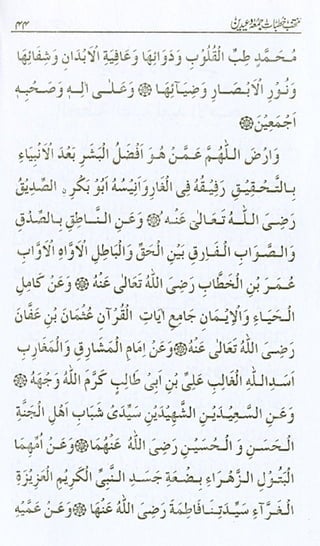 ۴۴ منتخب خطبات جمعہ و عیدین
مُحَمَّدٍ طِبِّ الْقُلُوْبِ وَدَوَائِهَا وَعَافِيَةِ الْاَبْدَانِ وَشِفَائِهَا
وَنُوْرِ الْاَبْصَارِ وَضِيَائِهَا ۞ وَعَلٰى اٰلِهٖ وَصَحْبِهٖ
اَجْمَعِيْنَ ۞
وَارْضَ اللّٰهُمَّ عَمَّنْ هُوَ اَفْضَلُ الْبَشَرِ بَعْدَ الْاَنْبِيَاءِ
بِالتَّحْقِيْقِ رَفِيْقُهٗ فِى الْغَارِ وَاَنِيْسُهٗ اَبُوْ بَكْرِ ۨ الصِّدِيْقُ
رَضِىَ اللّٰهُ تَعَالٰى عَنْهُ ۞ وَعَنِ النَّاطِقِ بِالصِّدْقِ
وَالصَّوَابِ الْفَارِقِ بَيْنَ الْحَقِّ وَالْبَاطِلِ الْاَوَّاهِ الْاَوَّابِ
عُمَرَ بْنِ الْخَطَّابِ رَضِىَ اللّٰهُ تَعَالٰى عَنْهُ ۞ وَعَنْ كَامِلِ
الْحَيَاءِ وَالْاِيْمَانِ جَامِعِ اٰيَاتِ الْقُرْاٰنِ عُثْمَانَ بْنِ عَفَّانَ
رَضِىَ اللّٰهُ تَعَالٰى عَنْهُ ۞ وَعَنْ اِمَامِ الْمَشَارِقِ وَالْمَغَارِبِ
اَسَدِ اللّٰهِ الْغَالِبِ عَلِىِّ بْنِ اَبِىْ طَالِبٍ كَرَّمَ اللّٰهُ وَجْهَهٗ ۞
وَعَنِ السَّعِيْدَيْنِ الشَّهِيْدَيْنِ سَيِّدَىْ شَبَابِ اَهْلِ الْجَنَّةِ
الْحَسَنِ وَ الْحُسَيْنِ رَضِىَ اللّٰهُ عَنْهُمَا ۞ وَعَنْ اُمِّهِمَا
الْبَتُوْلِ الزَّهْرَاءِ بِضْعَةِ جَسَدِ النَّبِىِّ الْكَرِيْمِ الْعَزِيْزَةِ
الْغَرَّآءِ سَيِّدَتِنَا فَاطِمَةَ رَضِىَ اللّٰهُ عَنْهَا ۞ وَعَنْ عَمَّيْهِ